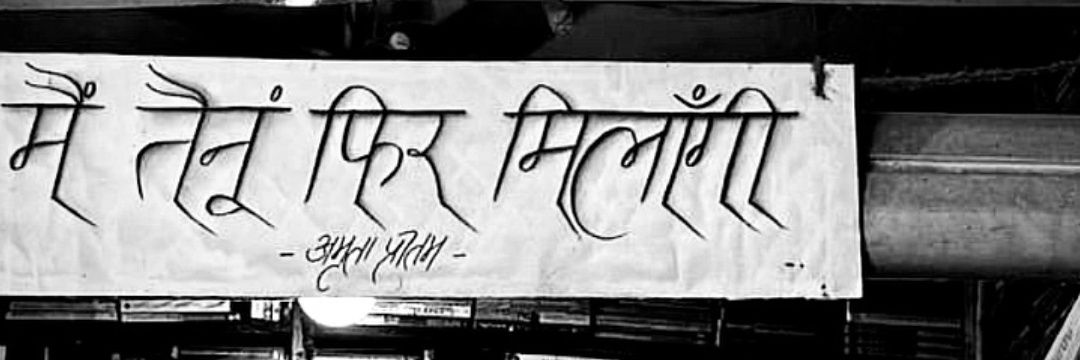 मैं तैनूं फिर मिलाँगी
- अमृता प्रीतम -